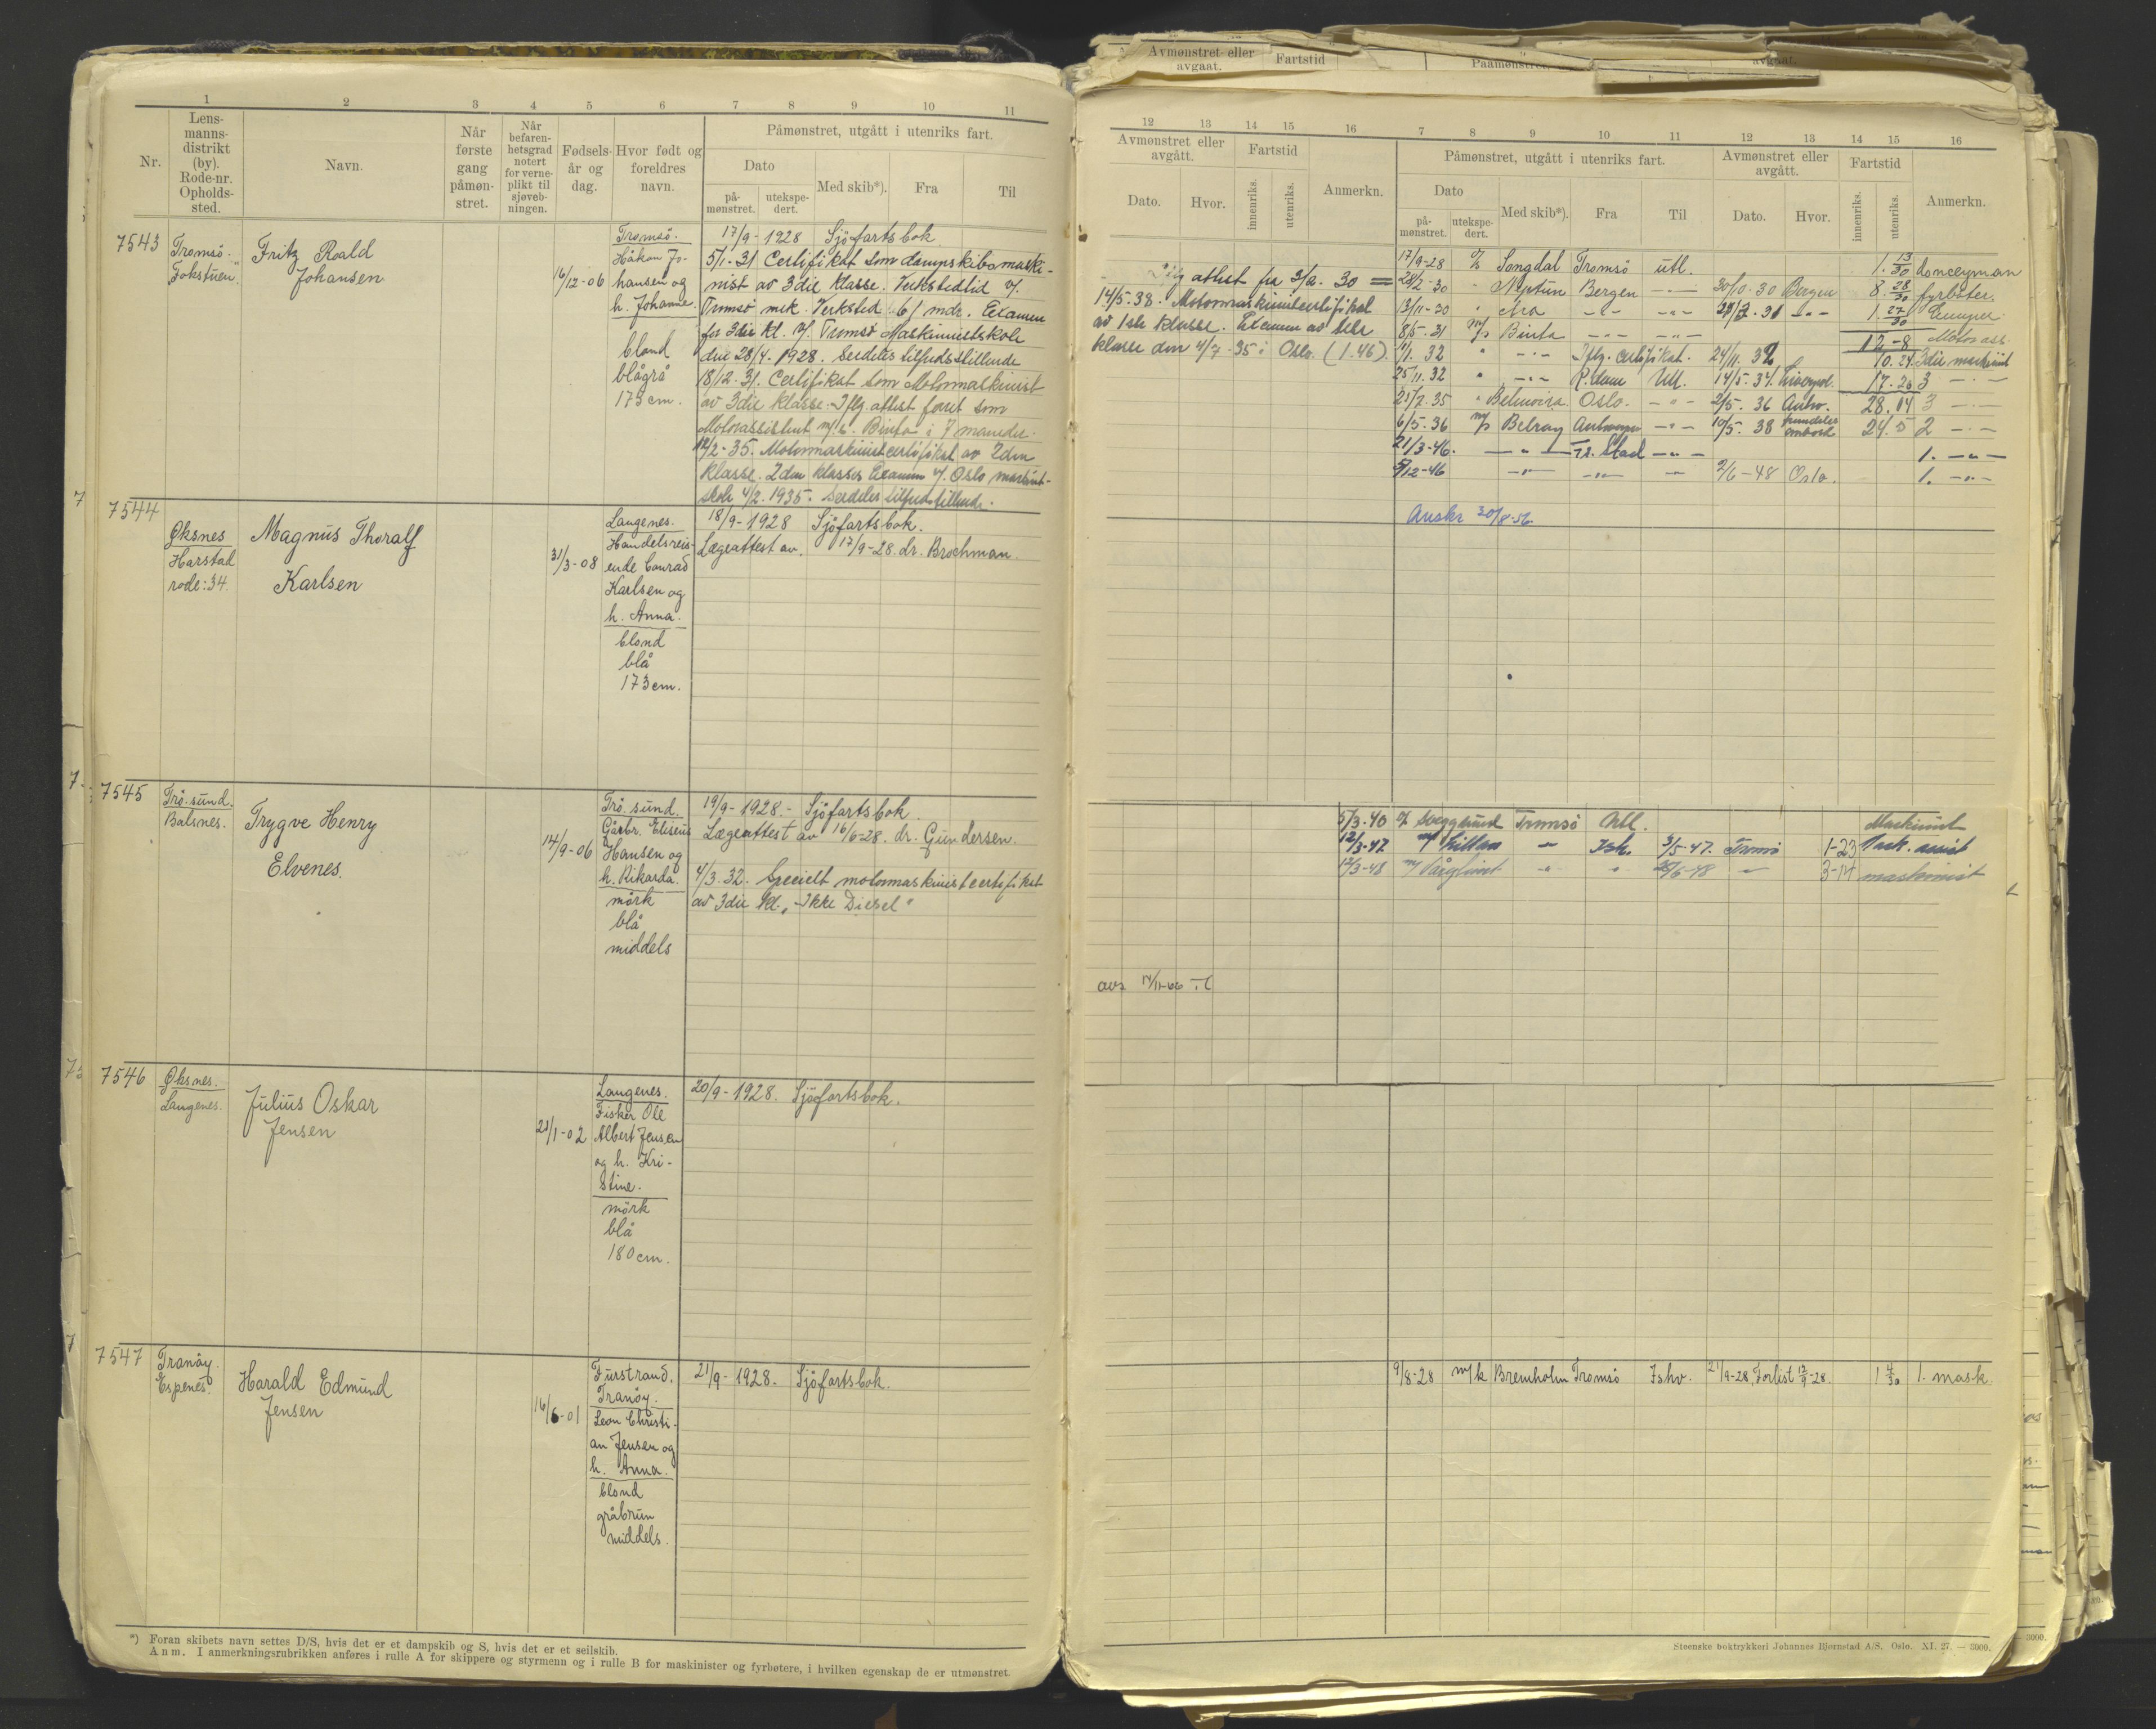 1 2 3 4 5 6 7 8 9 10 11
Nr.
Lens-
manns-
distrikt
(by).
Rode-nr.
Opholds-
sted.
Navn.
Når
første
gang
påmøn-
stret.
Når
befaren-
hetsgrad
notert
for verne-
plikt til
sjøveb-
ningen.
Fødsels-
år og
dag.
Hvor født og
foreldres
navn.
Påmønstret, utgått i utenriks fart.
Dato
på-
mønstret.
utekspe-
dert.
Med skib*).
Fra
Til
7543
Tromsö.
"Fokstuen"
Fritz Roald
Johansen
16/12-06
Tromsö.
Håkon Jo-
hansen og
h. Johanne.
blond
blågrå
173 cm.
17/9-1928 Sjöfartsbok.
5/1-31 Certifikat som dampskibsmaski-
nist av 3die klasse. Verkstedtid v/.
Tromsö mek. Verksted 61 mdr. Examen
for 3die kl. v/. Tromsö Maskinistskole
den 28/4. 1928. Særdeles tilfredsstillende
18/12-31. Certifikat som Motormaskinist
av 3die klasse. Iflg. attest faret som
Motorassistent m/s. Binta i 7 maneder.
12/2-35. Motormaskinistcertifikat av 2den
klasse. 2den klasses Examen v/. Oslo maskinist-
skole 4/2. 1935. Særdeles tilfredsstillende.
7544
Øksnes
Harstad
rode: 34.
Magnus Thoralf
Karlsen
31/3-08
Langenes.
Handelsreis-
ende Conrad
Karlsen og
h. Anna.
blond
blå
173 cm.
18/9-1928 Sjöfartsbok.
Lægeattest av. 17/9-28. dr. Brochman.
7545
Trö.sund.
Balsnes.
Trygve Henry
Elvenes.
14/9-06
Trö.sund.
Gårbr. Eliseus
Hansen og
h. Rikarda.
mörk
blå
middels
19/9-1928.- Sjöfartsbok.
Lægeattest av 16/6-28. dr. Gundersen.
4/3.32. Specielt motormaskinistcertifikat
av 3die kl. "Ikke Diesel"
7546
Øksnes.
Langenes.
Julius Oskar
Jensen
Langenes.
Fisker Ole
Albert Jensen
og h. Kri-
stine.
mörk
blå
180 cm.
20/9-1928. Sjöfartsbok.
7547
Tranöy.
Espenes.
Harald Edmund
Jensen
16/6-01
Furstrand.
Tranöy.
Leon Christi-
an Jensen og
h. Anna.
blond
gråbrun
middels.
21/9-1928. Sjöfartsbok.
*) Foran skibets navn settes D/S, hvis det er et dampskib og S, hvis det er et seilskib.
Anm. I anmerkningsrubrikken anføres i rulle A for skippere og styrmenn og i rulle B for maskinister og fyrbøtere, i hvilken egenskap de er utmønstret.
Avmønstret eller
avgaat.
Fartstid
12 13 14 15 16 7 8 9 10 11 12 13 14 15 16
Avmønstret eller
avgått.
Dato.
Hvor.
Fartstid
innenriks.
utenriks.
Anmerkn.
Påmønstret, utgått i utenriks fart.
Dato
på-
mønstret.
utekspe-
dert.
Med skib*).
Fra
Til
Avmønstret eller
avgått.
Dato.
Hvor.
Fartstid
innenriks.
utenriks.
Anmerkn.
14/5.38. Motormaskinistcertifikat
av 1ste klasse. Examen av 1ste
klasse den 4/7.35 i Oslo. (1.46).
17/9-28 Songdal Tromsö utl. 1. 13/30 donceyman
28/2-30 Neptun Bergen 30/10.30 Bergen 8. 28/30 fyrböter.
13/11-30 1. 27/30
8/5.31 Binta 12-8 Motorass.
1.32 Iflg. certifikat. 24/11.32 10.24. 3die maskinist
25/11.32 R.dam Utl. 14/5.34. Liverpool. 17.20 3
21/7.35 Oslo. 2/5.36 Antw. 28.14 3
6/5.36 m/s Belray Antwerpen 10/5.38 24.5 2
21/3-46. Fr. Stad 1.
5/12-46 2/6-48 Oslo. 1.
30/8-56.
5/3.40 Tromsö Maskinist
12/3-47 Ish. 3/5-47. Tromsö 1-23 Mask. assist
12/3-48 3-14 maskinist
9/8-28 m/k Bremholm Tromsö Ishv. 21/9-28. Forlist 17/9-28. 1 4/30 1. mask.
Steenske boktrykkeri Johannes Bjørnstad A/S, Oslo. XI. 27. — 3000.